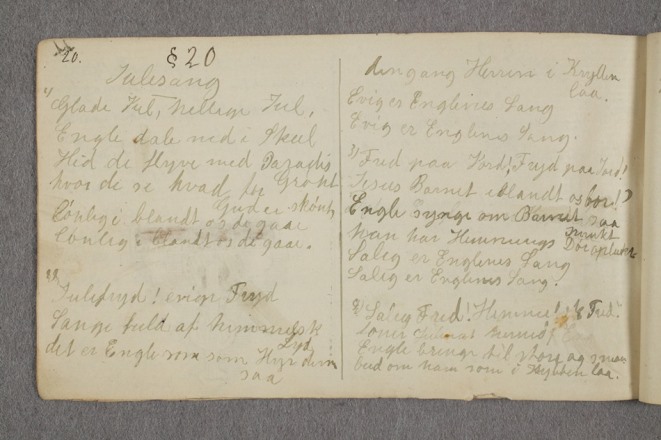 20.
§ 20
Julesang
1) Glade Jul, hellige Jul,
Engle dale ned i Skul
Hid de flyve med Paradis Grønt
hvor de se hvad for Gud er skønt,
Lønlig i blandt os de gaae
Lønlig i blandt os de gaae.
2) Julefryd! evige Fryd
Sange held af himmelsk Lyd
det er Engle som som Hyrderne
saa
den gang Herren i Krybben
laa.
Evig er Englenes Sang
Evig er Englenes Sang.
3) Fred paa Jord! Fryd paa Jord!
Jesus Barnet iblandt os bor!
Engle synge om Barnet saa
smukt
Han har Himmerigs Dør oplukt
Salig er Englenes Sang
Salig er Englenes Sang.
4) Salig Fred! Himmel Fred!
Toner
Engle bringe til store og smaa
bud om ham som i Krybben laa.